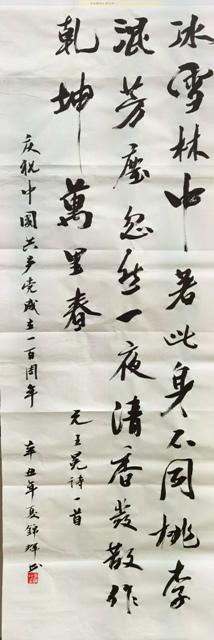 冰雪林中著此身不同桃李
混芳塵忽然一夜清香發散作
乾坤萬里春
元王冕詩一首
庆祝中國共产党成立一百周年
辛丑年夏錦辉书